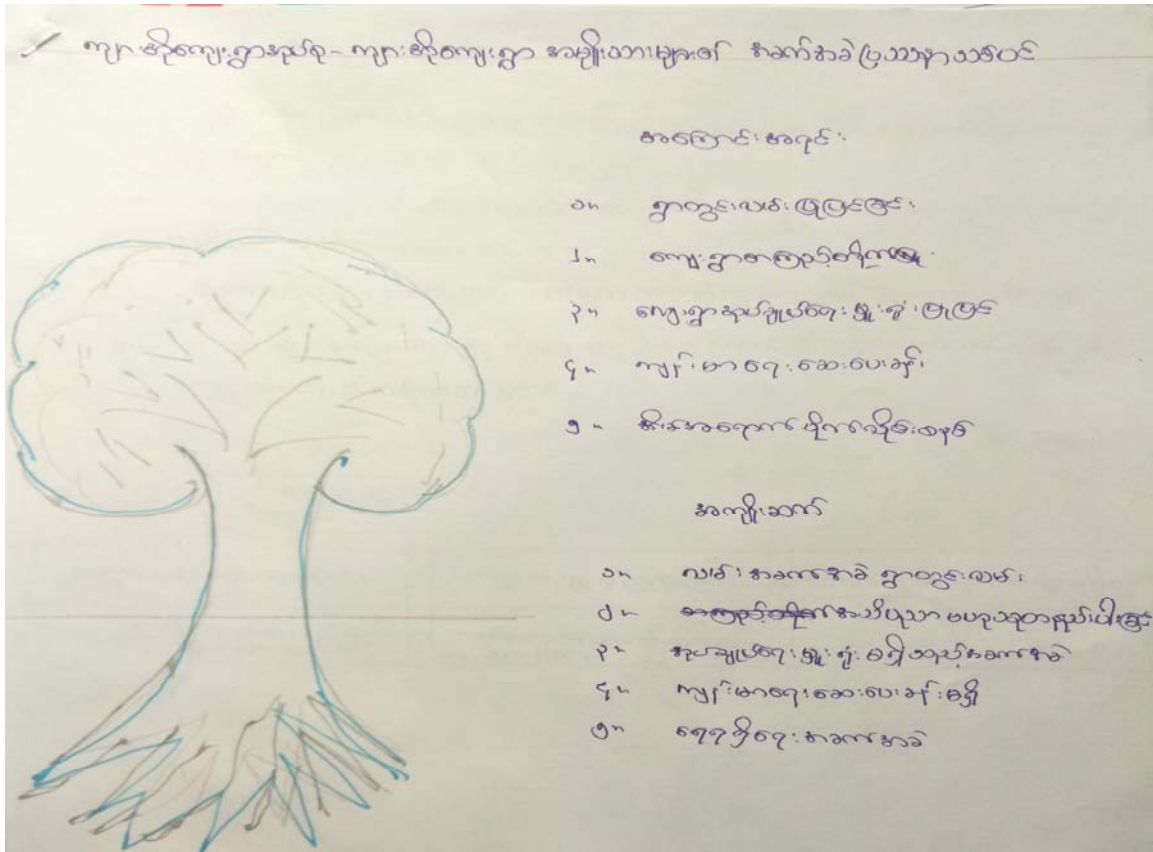 ကျားအိုကျေးရွာအုပ်စု - ကျားအိုကျေးရွာ အမျိုးသားများ၏ အခက်အခဲ ပြဿနာသစ်ပင်
အကြောင်းအရင်း
၁။ ရွာတွင်းလမ်းပြုပြင်ခြင်း
၂။ ကျေးရွာစာကြည့်တိုက်
၃။ ကျေးရွာအုပ်ချုပ်ရေးမှူးရုံးပြုပြင်
၄။ ကျန်းမာရေးဆေးပေးခန်း
၅။ စိုက်လှိုင်းစနစ်
အကျိုးဆက်
၁။ လမ်းအခက်အခဲ ရွာတွင်းလမ်း
၂။ အသိပညာ ဗဟုသုတနည်းပါးခြင်း
၃။ အုပ်ချုပ်ရေးမှူးရုံးမရှိသည့်အခက်အခဲ
၄။ ကျန်းမာရေးဆေးပေးခန်းမရှိ
၅။ ရေရရှိရေးအခက်အခဲ